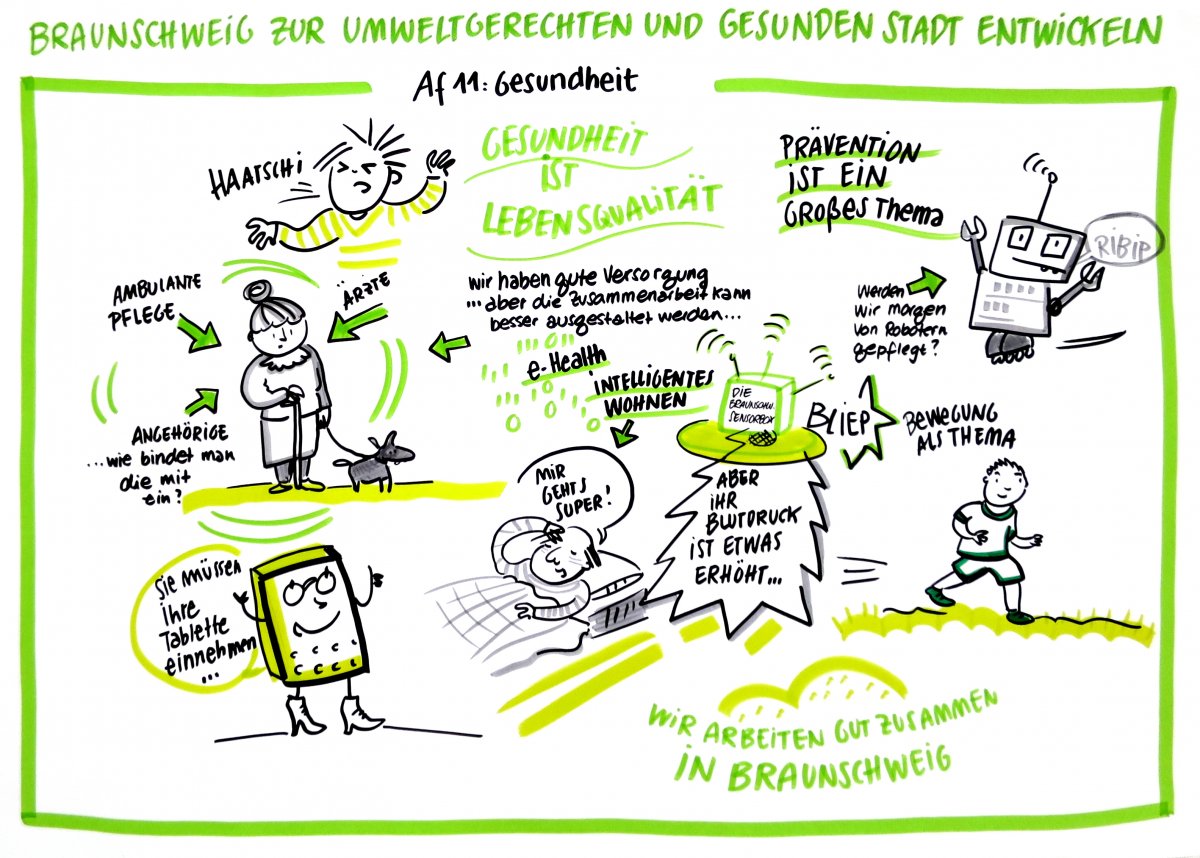 BRAUNSCHWEIG ZUR UMWELTGERECHTEN UND GESUNDEN STADT ENTWICKELN
Af 11: Gesundheit
HAATSCHI
GESUNDHEIT
IST
LEBENSQUALITÄT
PRÄVENTION
IST EIN
GROßES THEMA
RIBIP
AMBULANTE
PFLEGE
ÄRZTE
wir haben gute Versorgung
...aber die Zusammenarbeit kann
besser ausgestaltet werden...
Werden
wir morgen
von Robotern
gepflegt?
e-Health
INTELLIGENTES
WOHNEN
DIE
BRAUNSCHW.
SENSORBOX
BLIEP
BEWEGUNG
ALS THEMA
ANGEHÖRIGE
...wie bindet man
die mit
ein?
MIR
GEHTS
SUPER!
ABER
IHR
BLUTDRUCK
IST ETWAS
ERHÖHT...
Sie müssen
ihre
Tablette
einnehmen
...
WIR ARBEITEN GUT ZUSAMMEN
IN BRAUNSCHWEIG